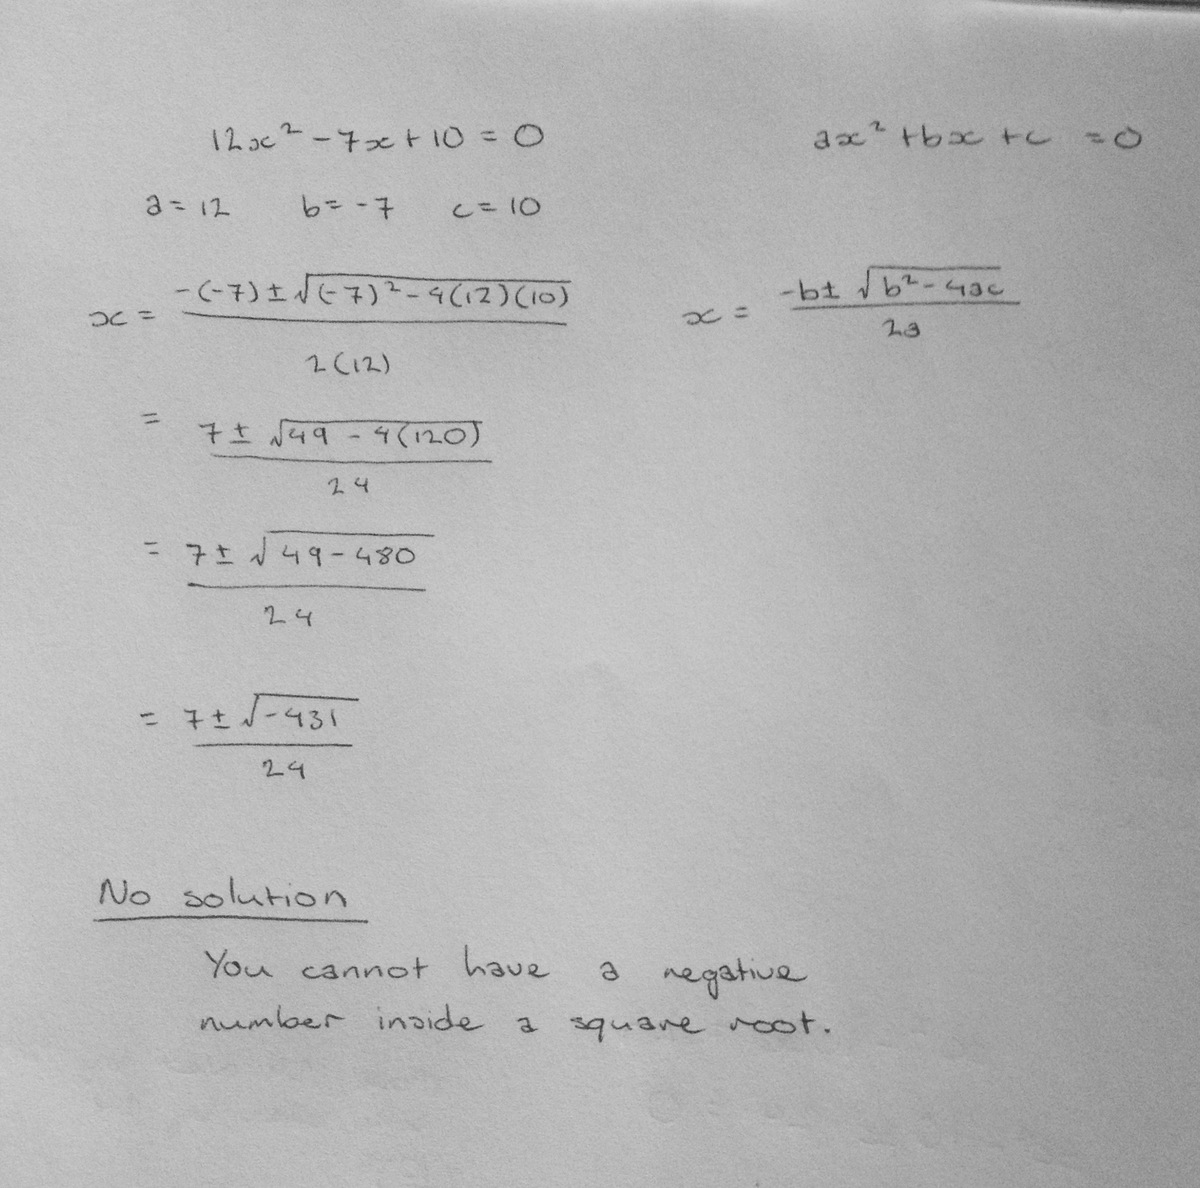 12x² - 7x + 10 = 0    ax² + bx + c = 0
a = 12    b = -7    c = 10
x = -(-7) ± √(-7)² - 4(12)(10) / 2(12)    x = -b ± √b² - 4ac / 2a
= 7 ± √49 - 4(120) / 24
= 7 ± √49 - 480 / 24
= 7 ± √-431 / 24
No solution
You cannot have a negative
number inside a square root.